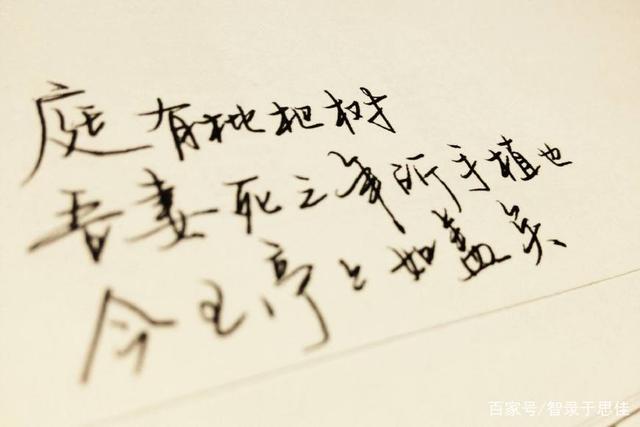 庭有枇杷树
吾妻死之年所手植也
今已亭亭如盖矣
百家号/智录于思佳